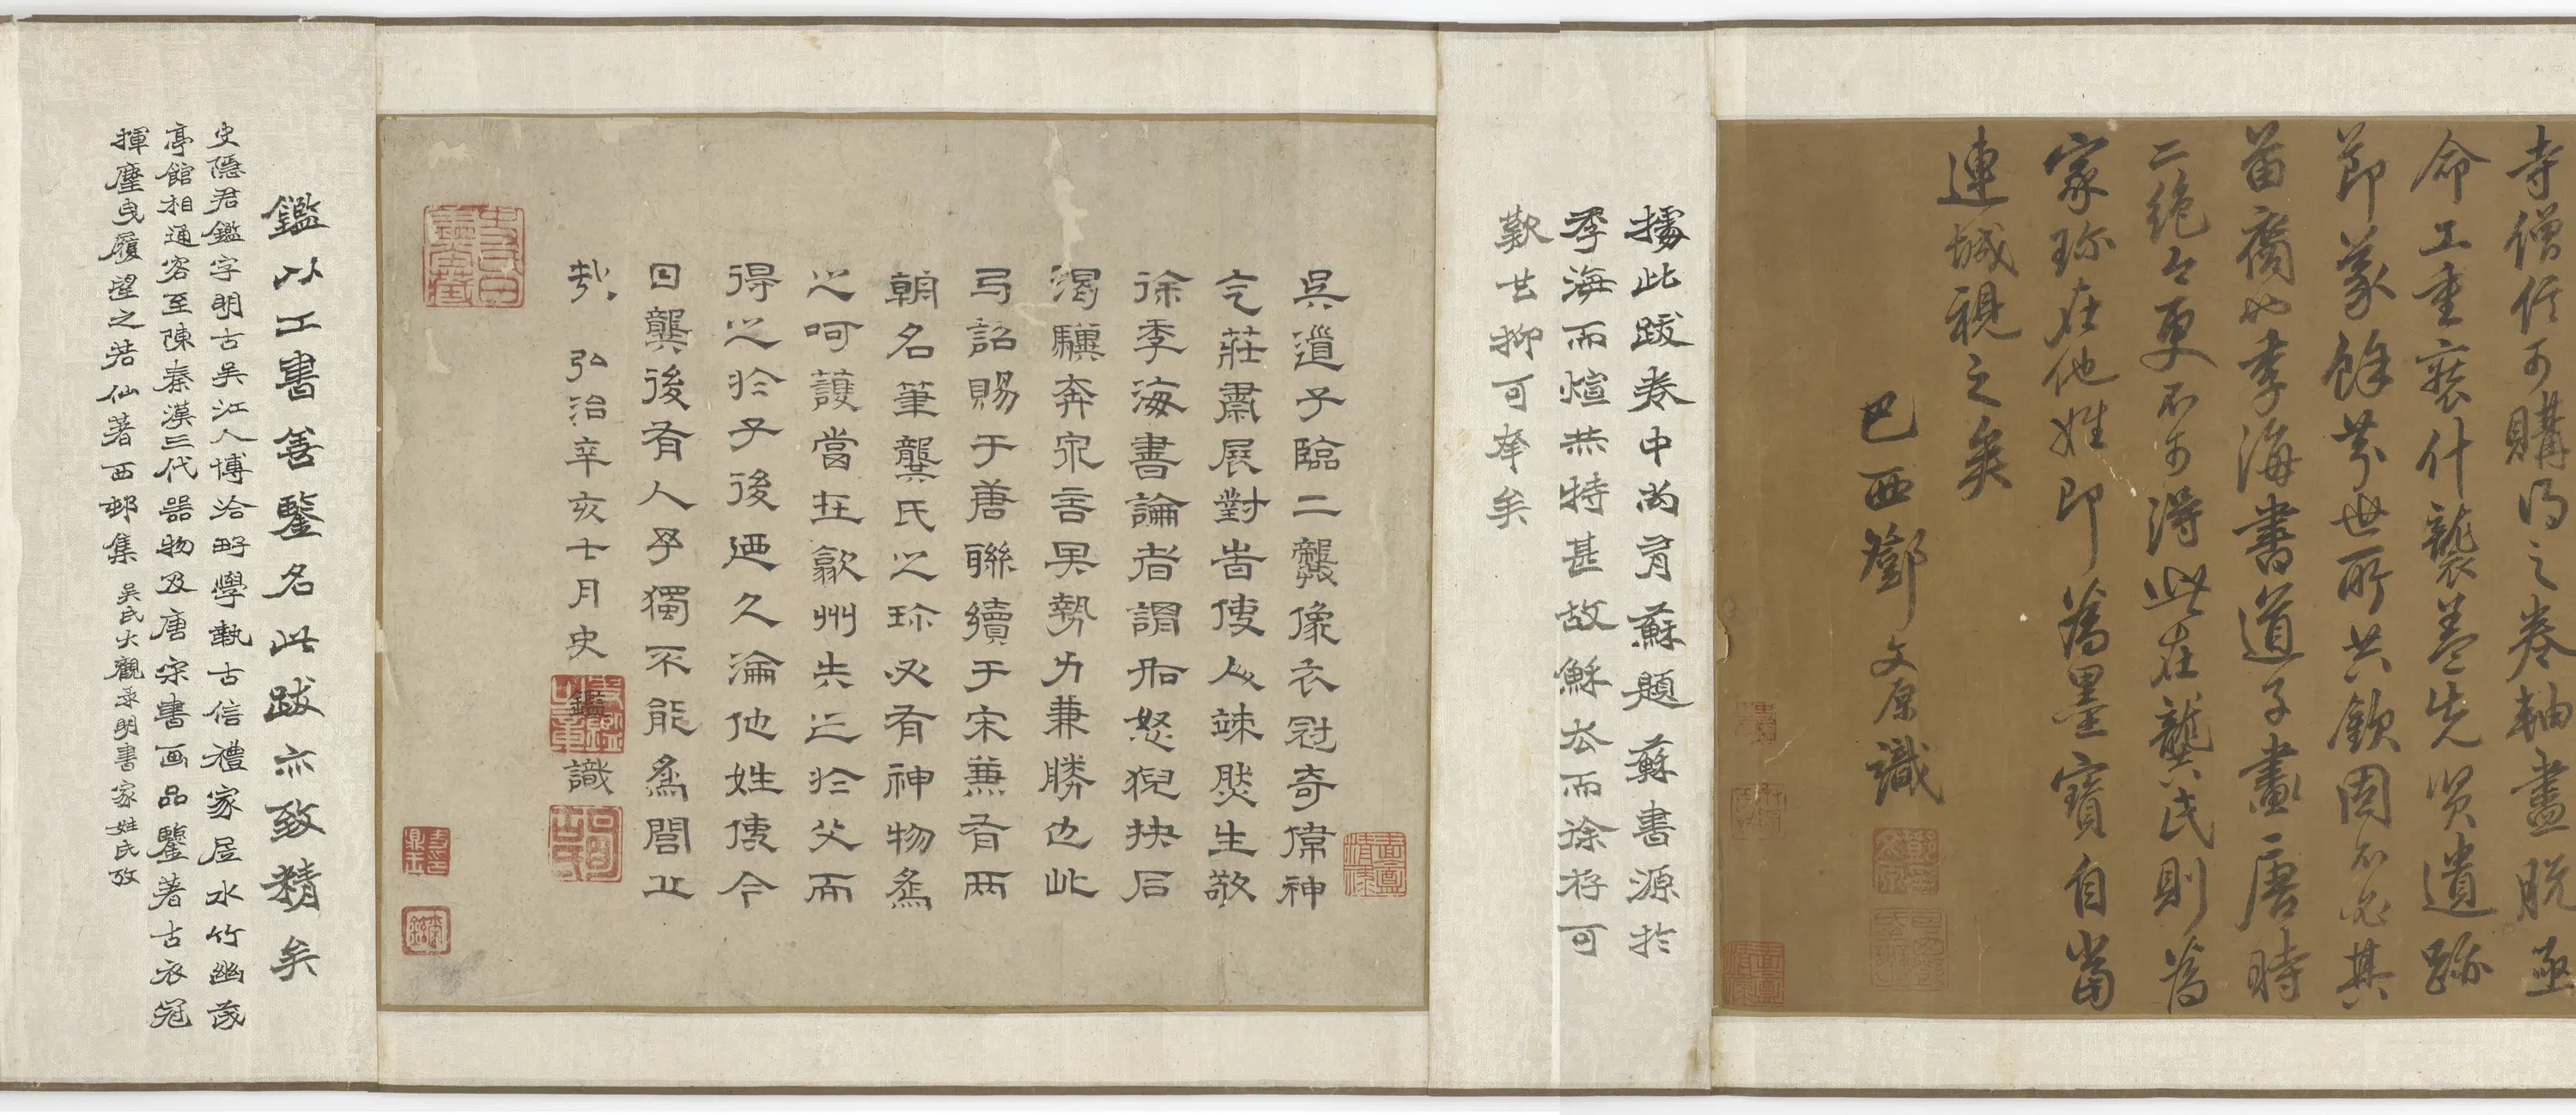 寺僧侶可購得之卷軸盡脫亟
命工重裝什襲蓋先賢遺跡
節彖餘芬世所共欽固不必其
苗裔也李海書道子畫唐時
二絕今更不可得此在龔氏則為
家珍在他姓即為墨寶自當
連城視之矣
巴西鄧文原識
據此跋卷中尚有蘇題蘇書源於
季海而煊赫特甚故穌太而徐存可
歎也抑可幸矣
吳道子臨二龔像衣冠奇偉神
气莊肅展對者使人竦然生敬
徐季海書論者謂如怒猊抉石
渴驥奔泉言其勢力兼勝也此
弓詔賜于唐聯續于宋兼有兩
朝名筆龔氏之珍必有神物為
之呵護當在歙州失之於父而
得之於子後迺久淪他姓使今
日龔後有人乎獨不能為閻业
哉 弘治辛亥七月史
鑑
識
鑑以工書善鑒名此跋亦致精矣
史隱君鑑字明古吳江人博洽野學執古信禮家居水竹幽茂
亭館相通客至陳秦漢三代器物及唐宋書画品鑒著古衣冠
揮麈曳履望之若仙著西邨集 吳氏大觀彔明書家姓氏攷